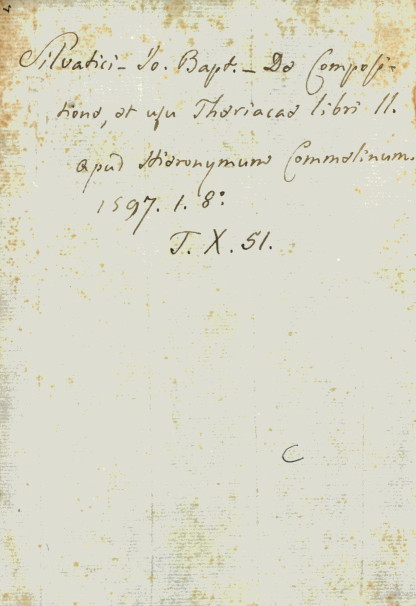 Silvatici - Io. Bapt. - De Composi-
tione, et usu Theriacae libri II.
apud Hieronymum Commelinum.
1597. 1. 8°.
T. X. 51.
C